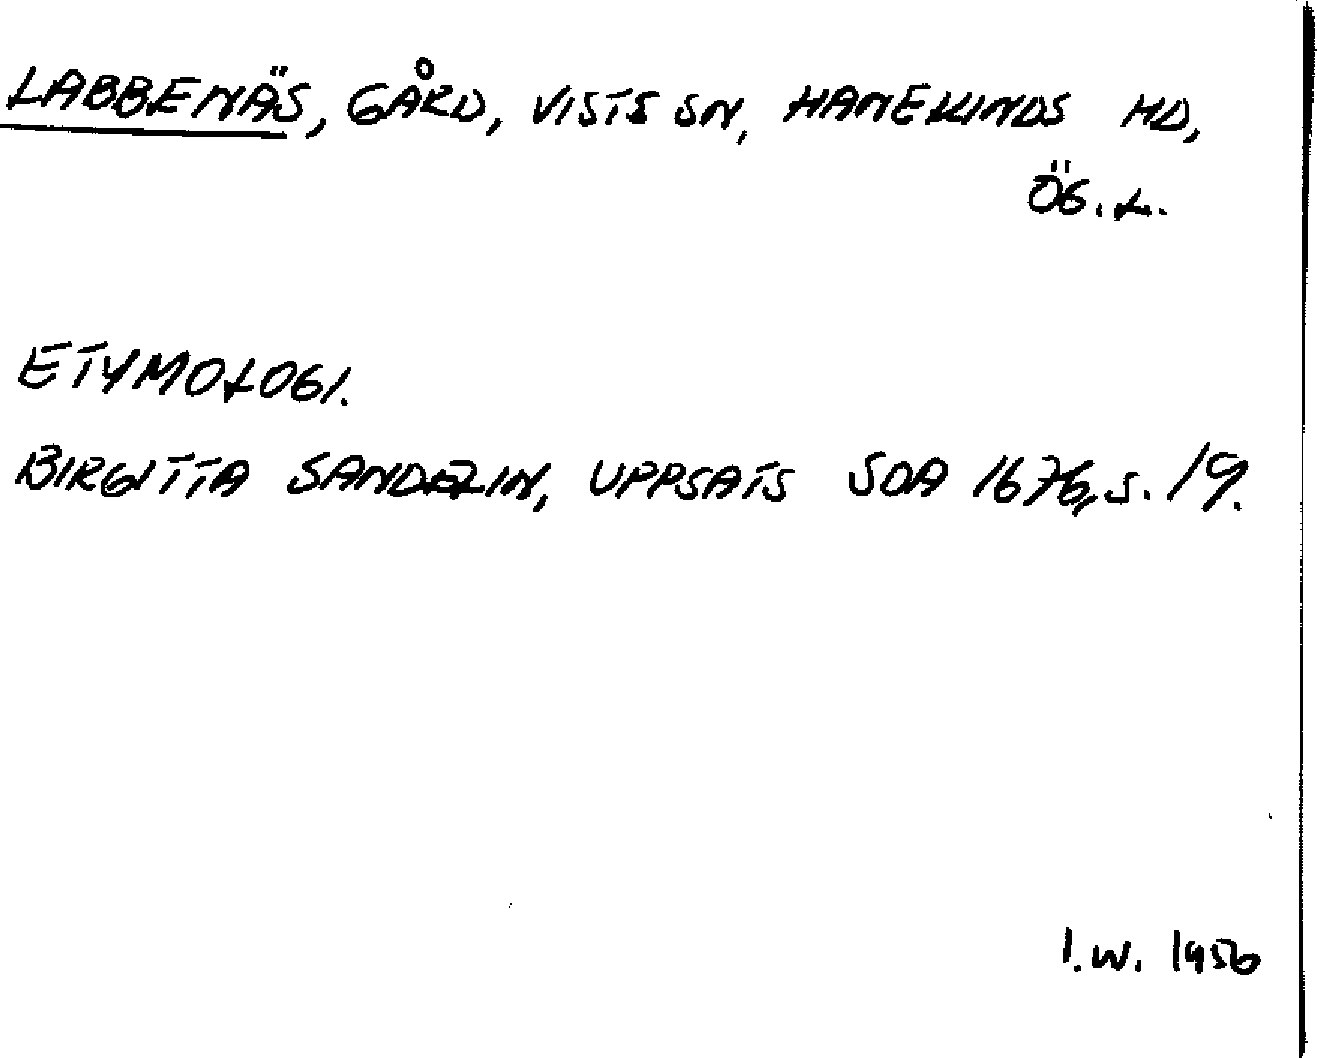 LABBENÄS, GÅRD, VISTS SN, HANEKINDS HD,
ÖG. L.
ETYMOLOGI.
BIRGITTA SANDELIN, UPPSATS SOA 1676, S. 19.
I.W. 1956